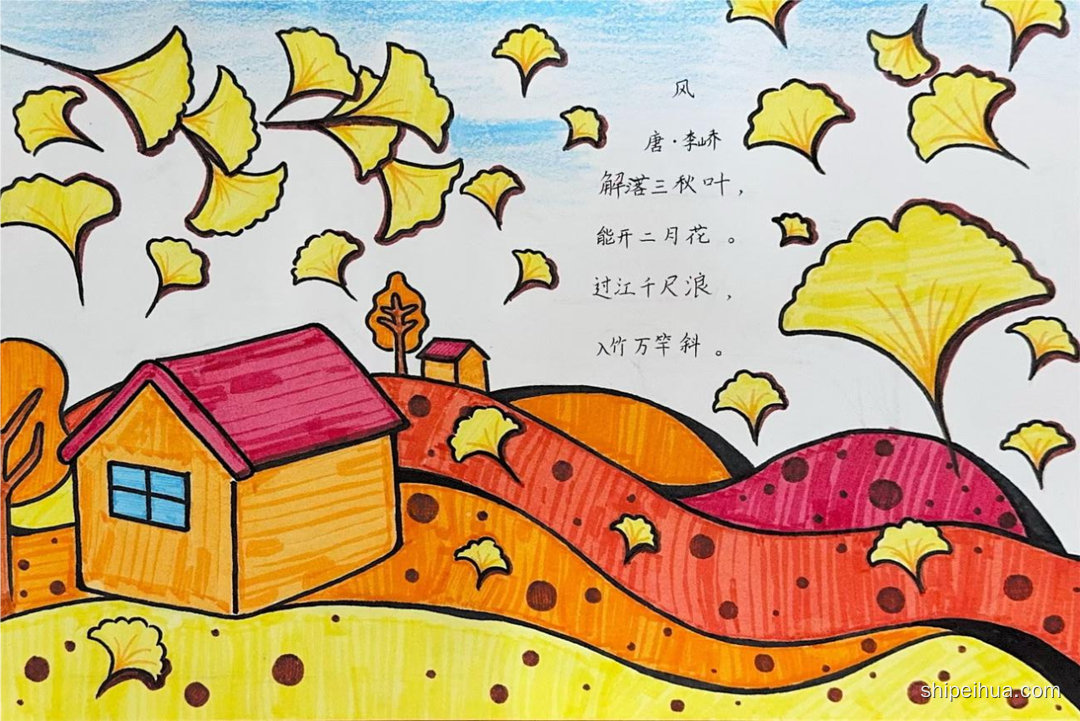 风
唐·李峤
解落三秋叶，
能开二月花。
过江千尺浪，
入竹万竿斜。
shipeihua.com